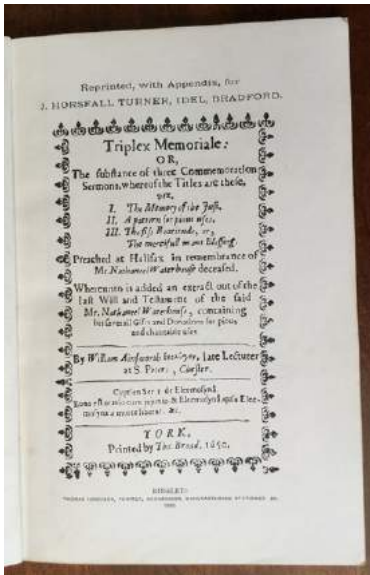 Reprinted, with Appendix, for
J. HORSFALL TURNER, IDEL, BRADFORD.
Triplex Memoriale:
OR,
The substance of three Commemoration
Sermons, whereof the Titles are these,
viz,
I. The Memory of the Just.
II. A pattern for pious uses.
III. The
The mercifull mans blessing.
Preached at Halifax in remembrance of
Mr. Nathanael Waterhouse deceased.
Whereunto is added an extract out of the
last Will and Testament of the said
Mr. Nathanael Waterhouse, containing
his severall Gifts and Donations for pious
and charitable uses
By William Ainsworth late Lecturer
at S. Peters, Chester.
Cyprian Ser. 1. de Eleemosyna.
&c.
YORK,
Printed by Tho. Broad. 1650.